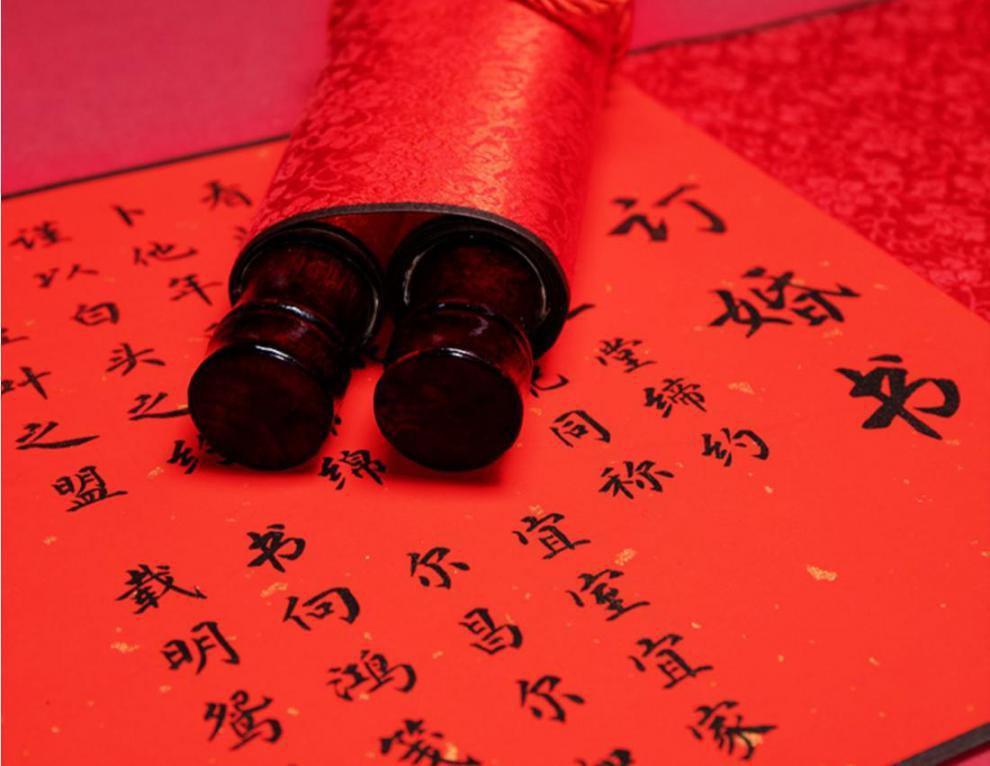 订婚书
堂缔约
同称
看宜室宜家
卜他年绵尔昌尔
谨以白头之书向鸿笺
叶之盟载明鸳